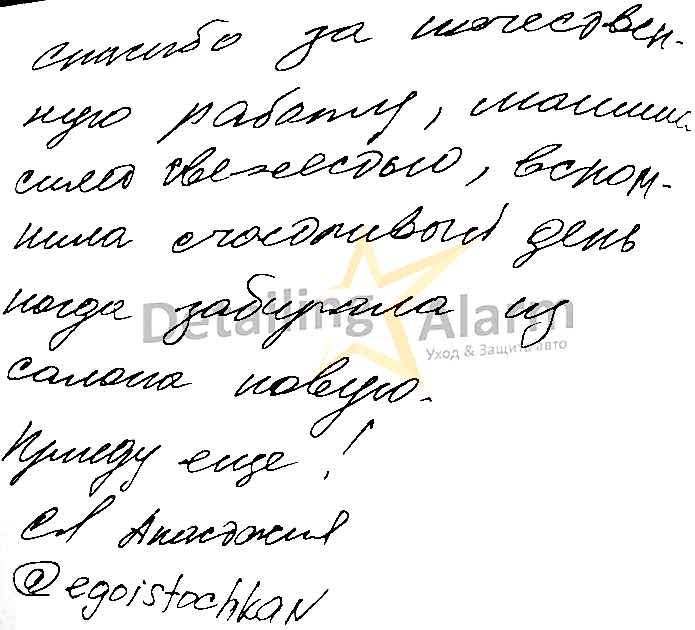 спасибо за качествен-
ную работу, машина
сияет свежестью, вспом-
нила счастливый день
когда забирала из
салона новую.
Приеду еще!
Анастасия
@egoistochkaN
Detailing Alarm
Уход & Защита авто